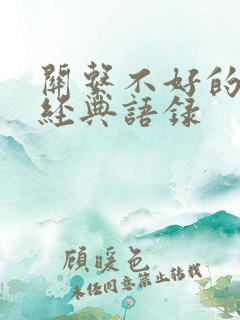 關繫不好的
經典語録
顧暖色
未經同意禁止轉載